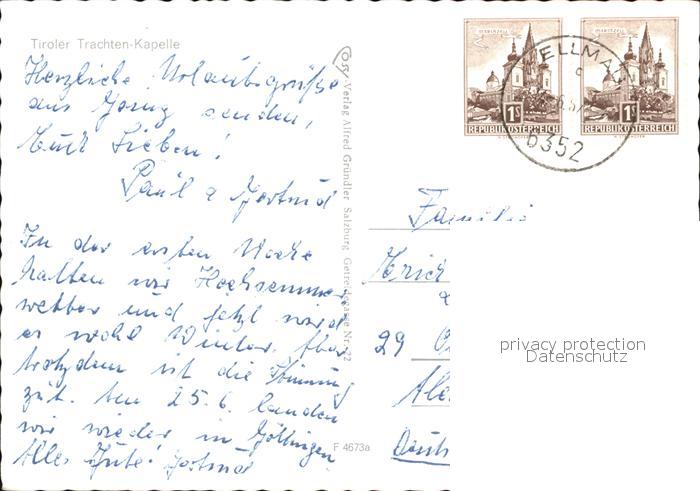 Tiroler Trachten-Kapelle
Herzliche Urlaubsgrüße
aus Going senden,
Euch Lieben!
Paul u Gertrud
In der ersten Woche
hatten wir Hochsommer-
wetter und jetzt wird
es wohl Winter. Aber
trotzdem ist die Stimmung
gut. Am 25.6. landen
wir wieder in Göttingen
Alles Gute! Gertrud
Verlag Alfred Gründler Salzburg Getreidegasse Nr. 22
F 4673a
MARIAZELL
MARIAZELL
1S
1S
REPUBLIK ÖSTERREICH
REPUBLIK ÖSTERREICH
ELLMAU
6352
Familie
29
privacy protection
Datenschutz